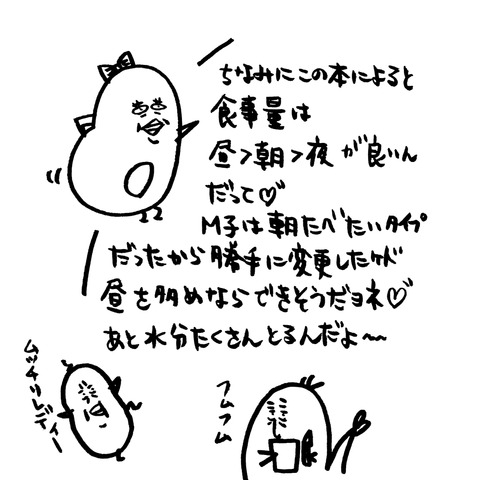 ちなみにこの本によると
食事量は
昼>朝>夜が良いん
だって♡
M子は朝たべたいタイプ
だったから勝手に変更したケド
昼を多めならできそうだヨネ♡
あと水分たくさんとるんだよ〜
ムッチリレディー
フムフム